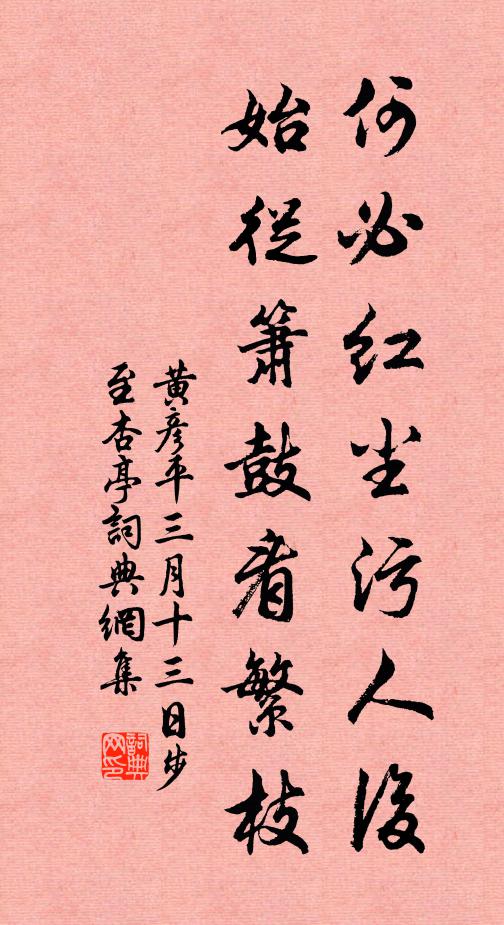 何必红尘污人後
始從簫鼓看繁枝
黄彦平三月十三日步
至杏亭詞典網集
詞典
网印